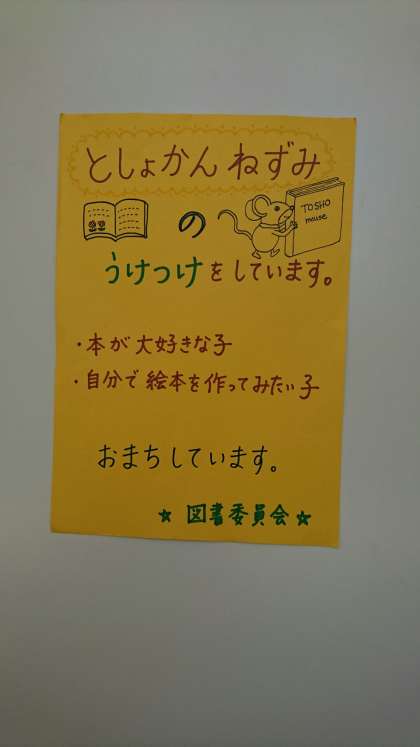 としょかんねずみ
の
TOSHO
mouse
うけつけをしています。
・本が大好きな子
・自分で絵本を作ってみたい子
おまちしています。
☆ 図書委員会 ☆